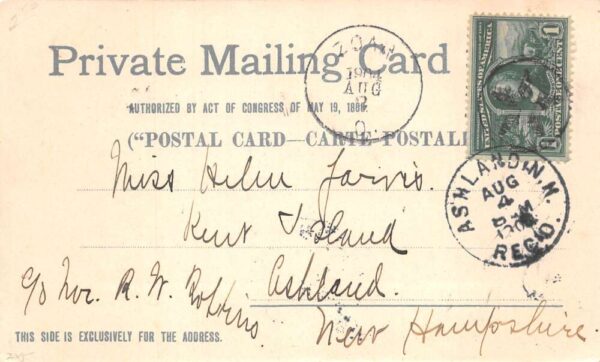 Private Mailing Card
AUTHORIZED BY ACT OF CONGRESS OF MAY 19, 1898.
("POSTAL CARD—CARTE POSTALE
Miss Helen Jarvis.
Kent Island
Ashland.
New Hampshire.
c/o Mr. R. W. Robbins
THIS SIDE IS EXCLUSIVELY FOR THE ADDRESS.
ZOAR
1904
AUG
2
O.
ASHLAND, N.H.
AUG
4
1904
REC'D.
1 1